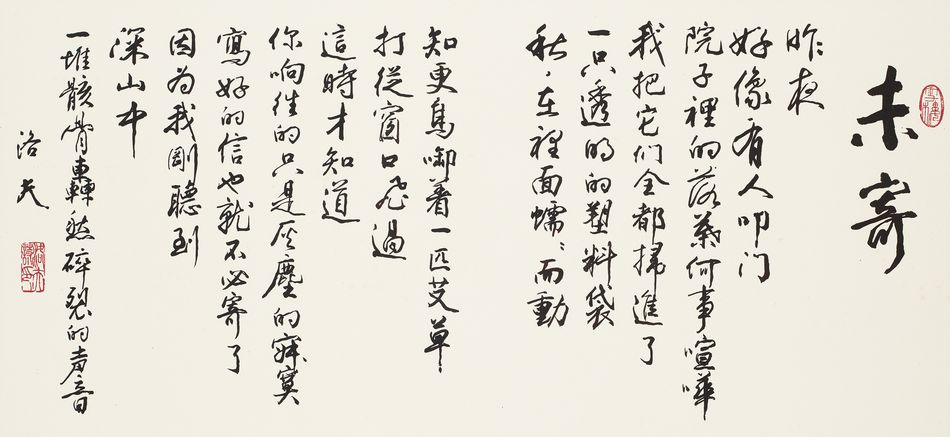 未寄
昨夜
好像有人叩门
院子裡的落葉何事喧嘩
我把它们全都掃進了
一只透明的塑料袋
秋、在裡面蠕〻而動
知更鳥啣着一匹艾草、
打從窗口飛過
這時才知道
你响往的只是灰塵的寂寞
寫好的信也就不必寄了
因为我剛聽到
深山中
一堆骸骨轟然碎裂的声音
洛夫